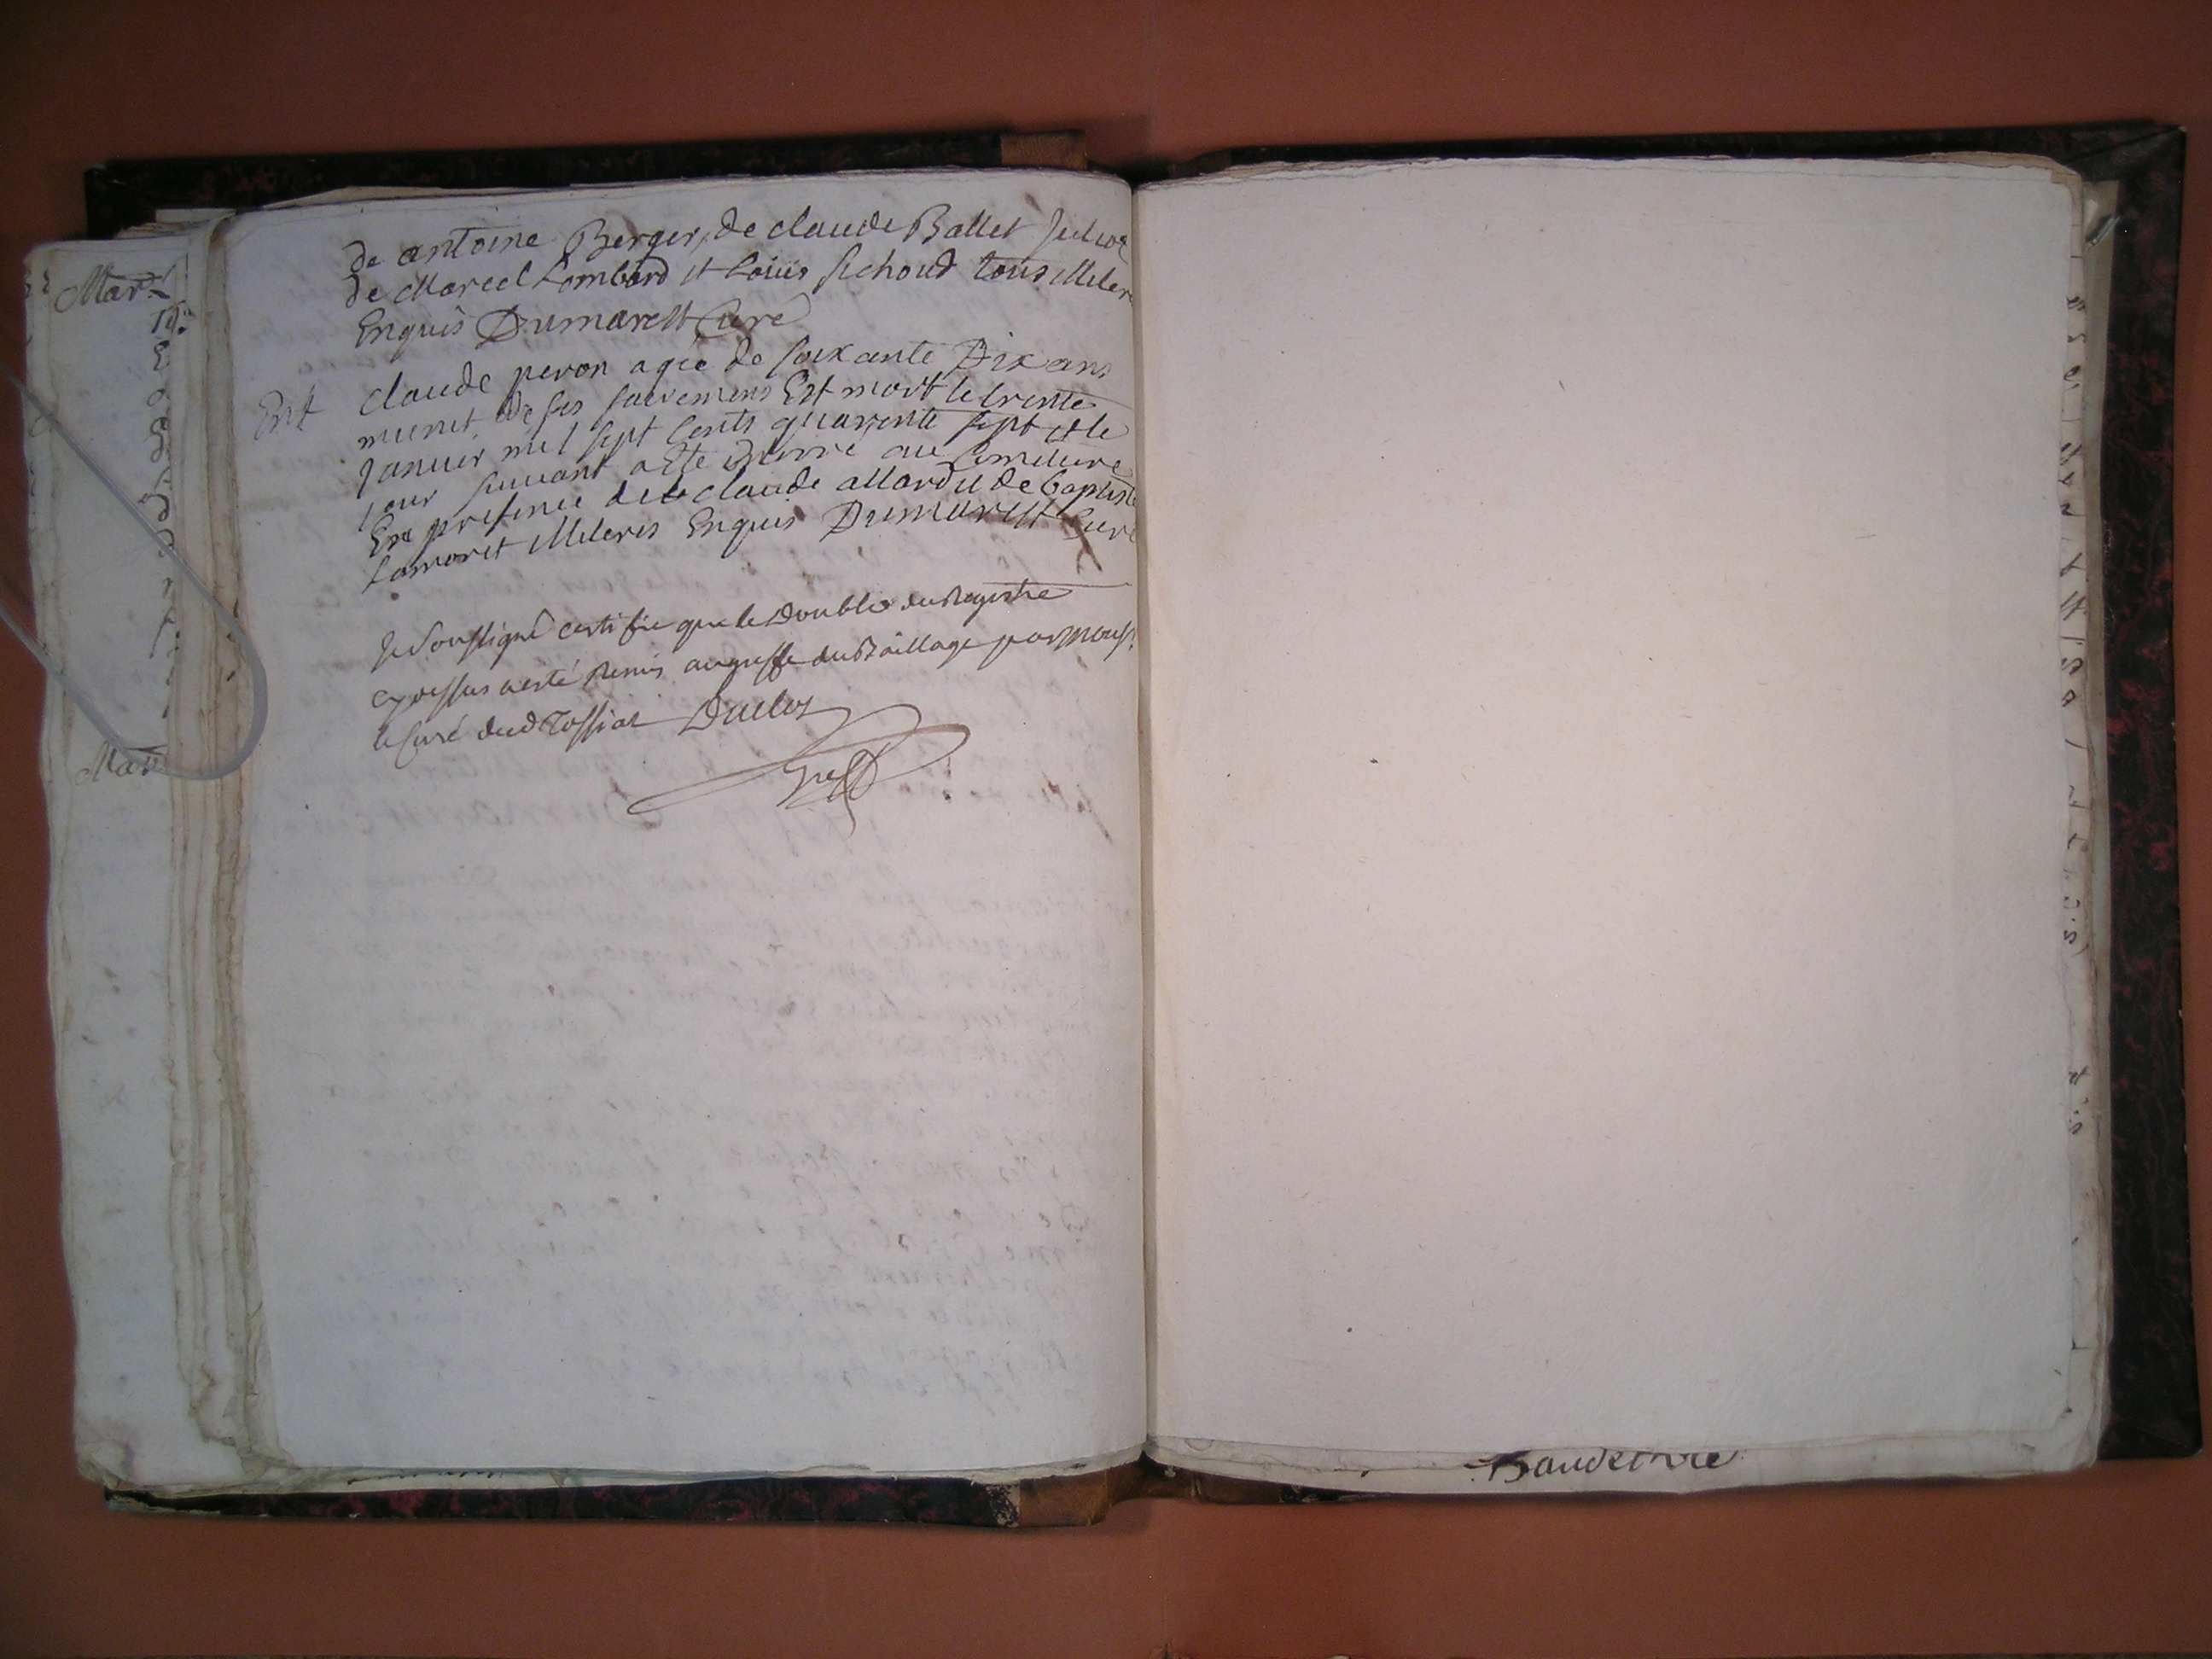 de antoine Berger, de claude Ballet
de Marcel Lombard et Loüis sichoud tous illeter
Enquis Dumarest Curé
Ent
claude peron agée de soixante Dix ans
munit de ses sacremens Est mort le trente
Janvier mil sept cents quarente sept et le
jour suivant a Ete Enterré au Cimetiere
En presence de claude allard et de baptiste
Lamoret illeterés Enquis Dumarest Curé
Je soussigné certifie que le Double du Registre
cy dessus a esté Remis au greffe du Bailliage par
le Curé dud Tossiat Duclos
Greff
Mar
Mar